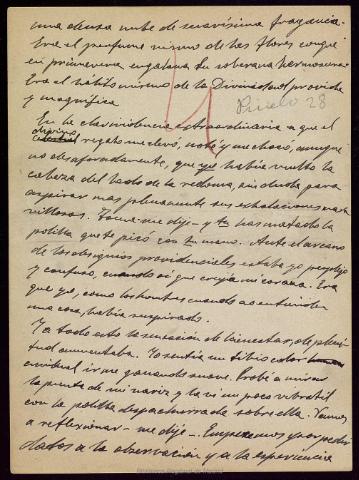 una densa nube de suavísima fragancia.
Era el perfume mismo de las flores con que
en primavera engalana su soberana hermosura.
Era el hálito mismo de la Divinidad próvida
y magnífica.
Pincelo 28
En la clarividencia extraordinaria a que el
divino regalo me elevó, noté y me chocó, aunque
no desaforadamente, que yo había vuelto la
cabeza del lado de la redoma, sin duda para
aspirar más plenamente sus exhalaciones mara-
villosas. Toma me dije – y tú has matado la
polilla que te picó con tu mano. Ante el arcano
de los designios providenciales estaba yo perplejo
y confuso, cuando oí que crujía mi coraza. Era
que yo, como los hombres cuando no entienden
una cosa, había suspirado.
Y a todo esto la sensación de bienestar, de pleni-
tud aumentaba. Yo sentía un tibio calor
cordial irme ganando suave. Probé a mirar
la punta de mi nariz y la vi un poco vibrátil
con la polilla despachurrada sobre ella. Vamos
a reflexionar – me dije –. Empecemos por pedir
datos a la observación y a la experiencia